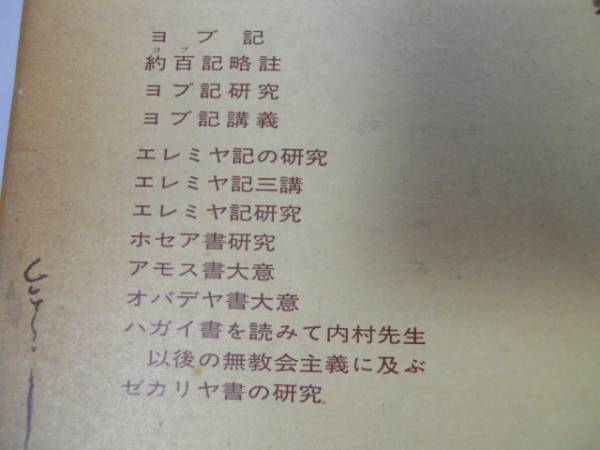 ヨブ記
約百記略註
ヨブ記研究
ヨブ記講義
エレミヤ記の研究
エレミヤ記三講
エレミヤ記研究
ホセア書研究
アモス書大意
オバデヤ書大意
ハガイ書を読みて内村先生
以後の無教会主義に及ぶ
ゼカリヤ書の研究